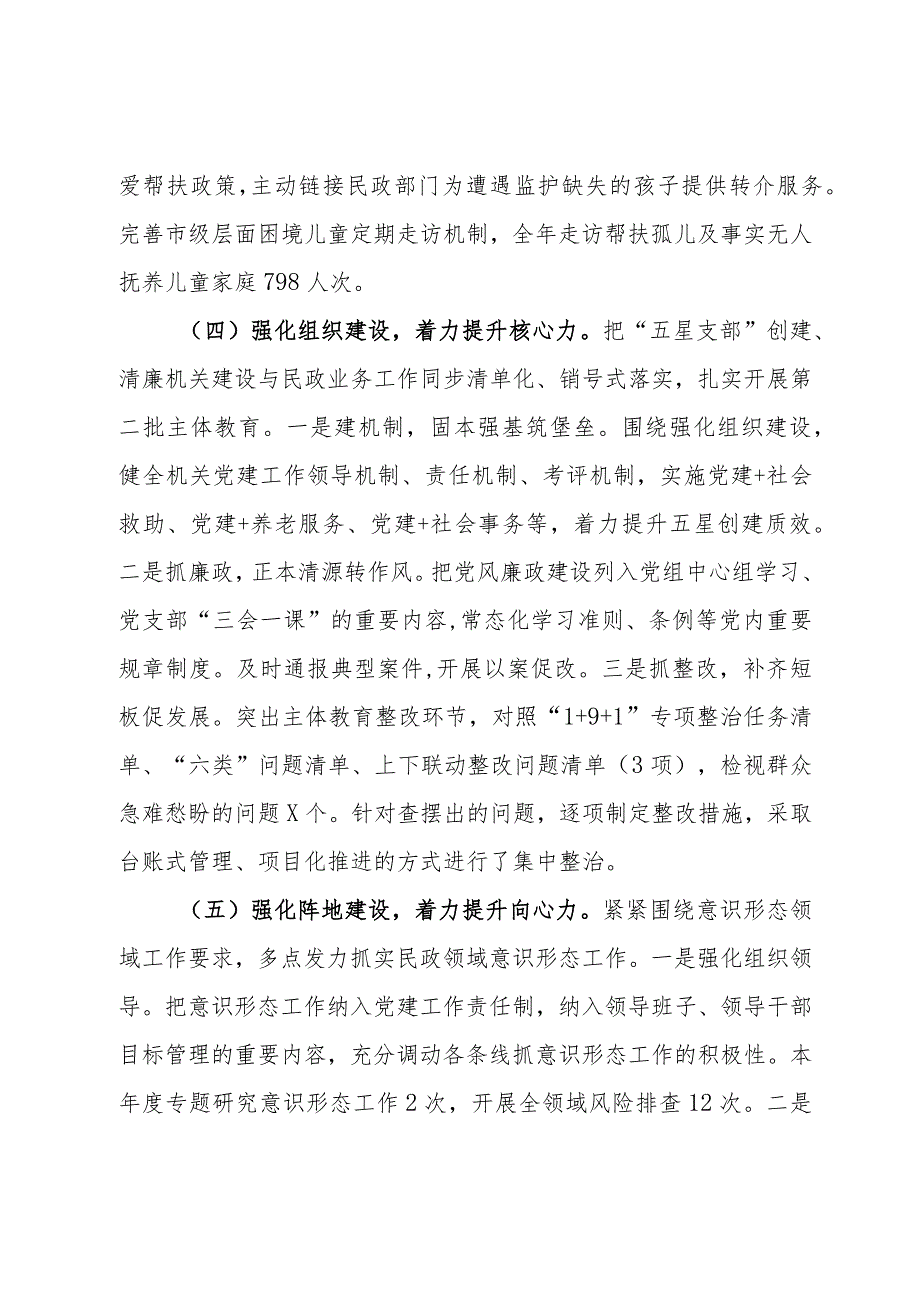 爱帮扶政策，主动链接民政部门为遭遇监护缺失的孩子提供转介服务。
完善市级层面困境儿童定期走访机制，全年走访帮扶孤儿及事实无人
抚养儿童家庭 798 人次。
（四）强化组织建设，着力提升核心力。把“五星支部”创建、
清廉机关建设与民政业务工作同步清单化、销号式落实，扎实开展第
二批主体教育。一是建机制，固本强基筑堡垒。围绕强化组织建设，
健全机关党建工作领导机制、责任机制、考评机制，实施党建+社会
救助、党建+养老服务、党建+社会事务等，着力提升五星创建质效。
二是抓廉政，正本清源转作风。把党风廉政建设列入党组中心组学习、
党支部“三会一课”的重要内容,常态化学习准则、条例等党内重要
规章制度。及时通报典型案件,开展以案促改。三是抓整改，补齐短
板促发展。突出主体教育整改环节，对照“1+9+1”专项整治任务清
单、“六类”问题清单、上下联动整改问题清单（3 项），检视群众
急难愁盼的问题 X 个。针对查摆出的问题，逐项制定整改措施，采取
台账式管理、项目化推进的方式进行了集中整治。
（五）强化阵地建设，着力提升向心力。紧紧围绕意识形态领
域工作要求，多点发力抓实民政领域意识形态工作。一是强化组织领
导。把意识形态工作纳入党建工作责任制，纳入领导班子、领导干部
目标管理的重要内容，充分调动各条线抓意识形态工作的积极性。本
年度专题研究意识形态工作 2 次，开展全领域风险排查 12 次。二是